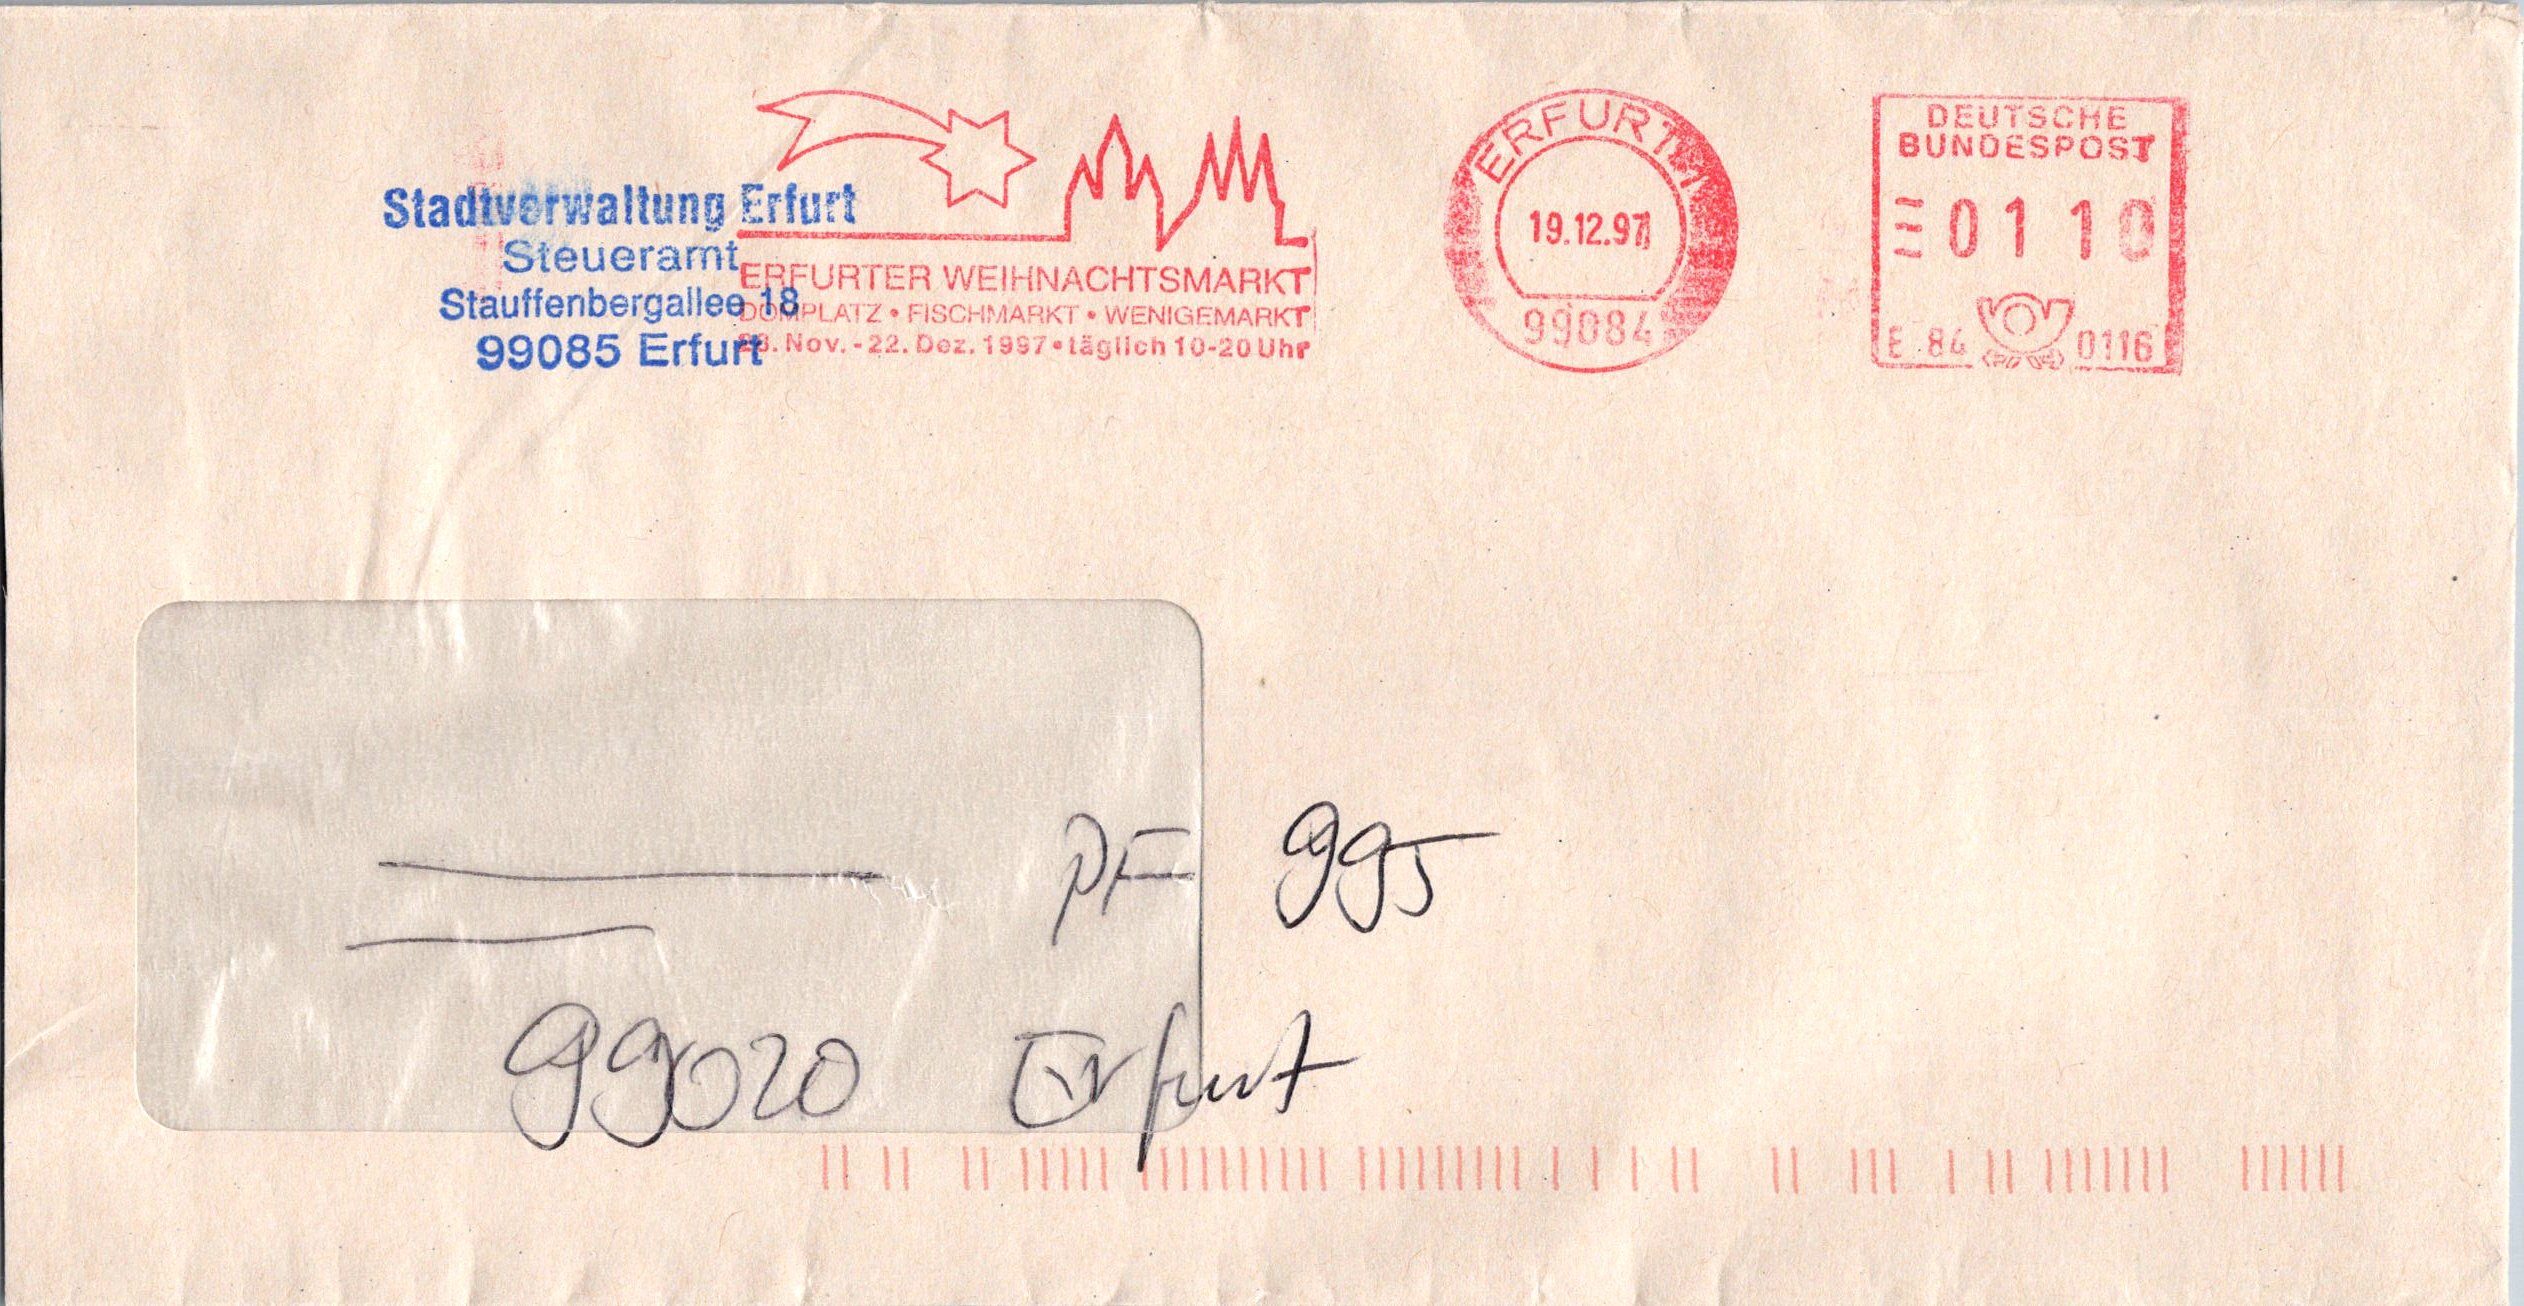 Stadtverwaltung Erfurt
Steueramt
Stauffenbergallee 18
99085 Erfurt
ERFURTER WEIHNACHTSMARKT
DOMPLATZ • FISCHMARKT • WENIGEMARKT
. Nov. - 22. Dez. 1997 • täglich 10-20 Uhr
ERFURT 1
19.12.97
99084
DEUTSCHE
BUNDESPOST
0110
E 84 0116
PF 995
99020 Erfurt